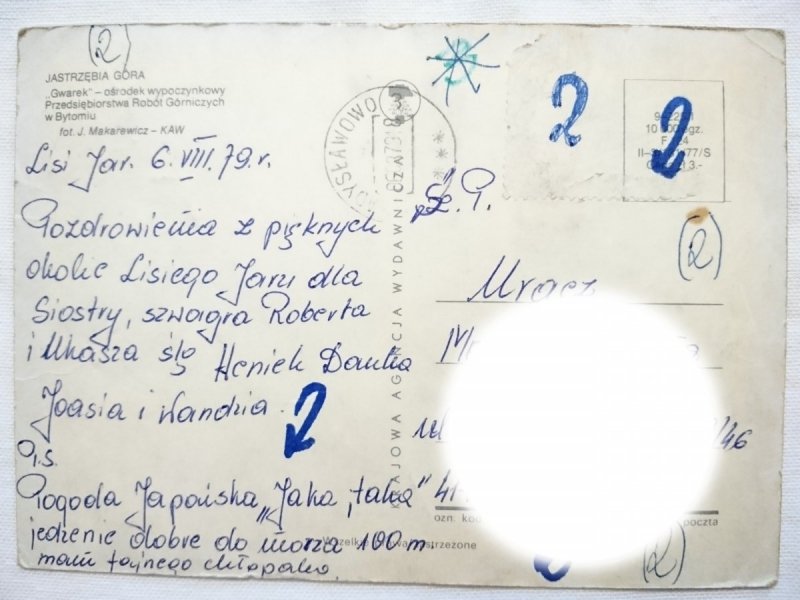 (2)
JASTRZĘBIA GÓRA
„Gwarek" – ośrodek wypoczynkowy
Przedsiębiorstwa Robót Górniczych
w Bytomiu
fot. J. Makarewicz – KAW
Lisi Jar. 6. VIII. 79. r.
Pozdrowienia z pięknych
okolic Lisiego Jaru dla
Siostry, szwagra Roberta
i Łukasza ślą Heniek Danka
Joasia i Wandzia.
P.S.
Pogoda Japońska „Jaka, taka"
jedzenie dobre do morza 100 m.
mam fajnego chłopaka.
KRAJOWA AGENCJA WYDAWNICZA
3
2
2
10 000 egz.
77/S
3.-
Sz. P.
(2)
Mracz
ul
46
41
2
ozn. kod
poczta
Wszelkie
zastrzeżone
(2)